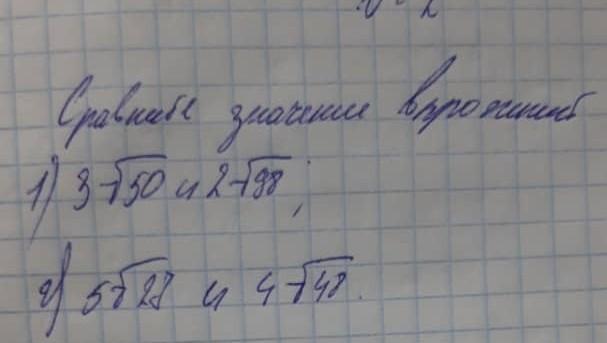 Сравните значение выражений
1) 3√50 и 2√98;
2) 5√28 и 4√48.